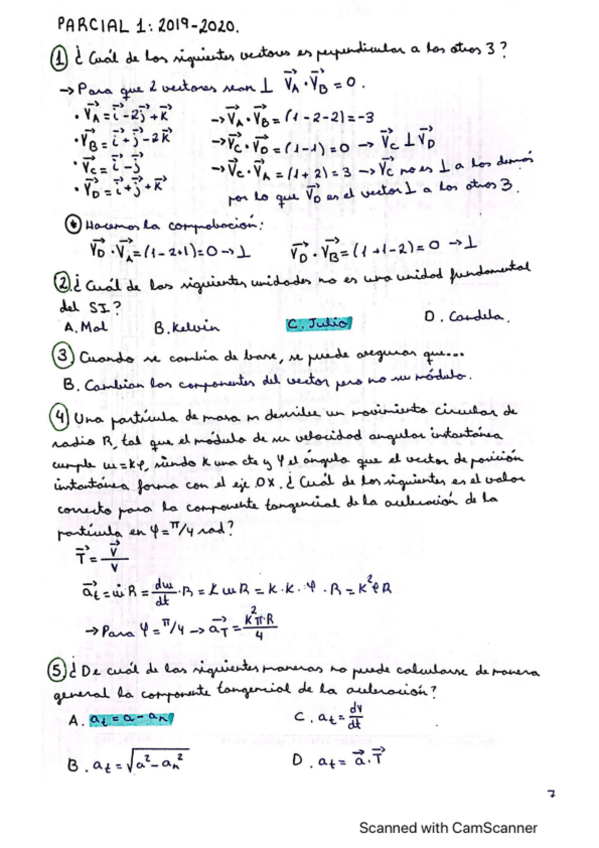 PARCIAL 1: 2019-2020.
① ¿Cuál de los siguientes vectores es perpendicular a los otros 3?
→ Para que 2 vectores sean ⊥ V⃗A · V⃗B = 0.
· V⃗A = i⃗ - 2j⃗ + k⃗ → V⃗A · V⃗B = (1-2-2) = -3
· V⃗B = i⃗ + j⃗ - 2k⃗ → V⃗C · V⃗D = (1-1) = 0 → V⃗C ⊥ V⃗D
· V⃗C = i⃗ - j⃗ → V⃗C · V⃗A = (1+2) = 3 → V⃗C no es ⊥ a los demás
· V⃗D = i⃗ + j⃗ + k⃗ por lo que V⃗D es el vector ⊥ a los otros 3.
Hacemos la comprobación:
V⃗D · V⃗A = (1-2+1) = 0 → ⊥ V⃗D · V⃗B = (1+1-2) = 0 → ⊥
② ¿Cuál de las siguientes unidades no es una unidad fundamental
del SI?
A. Mol B. Kelvin C. Julio D. Candela.
③ Cuando se cambia de base, se puede asegurar que...
B. Cambian las componentes del vector pero no su módulo.
④ Una partícula de masa m describe un movimiento circular de
radio R, tal que el módulo de su velocidad angular instantánea
cumple ω = kφ, siendo K una cte y φ el ángulo que el vector de posición
instantánea forma con el eje OX. ¿Cuál de los siguientes es el valor
correcto para la componente tangencial de la aceleración de la
partícula en φ = π/4 rad?
T⃗ = v⃗/v
a⃗t = ω̇ R = dω/dt · R = K ω R = K · K · φ · R = K²φR
→ Para φ = π/4 → a⃗T = K²π·R/4
⑤ ¿De cuál de las siguientes maneras no puede calcularse de manera
general la componente tangencial de la aceleración?
A. at = a - an C. at = dv/dt
B. at = √(a² - an²) D. at = a⃗ · T⃗
7
Scanned with CamScanner